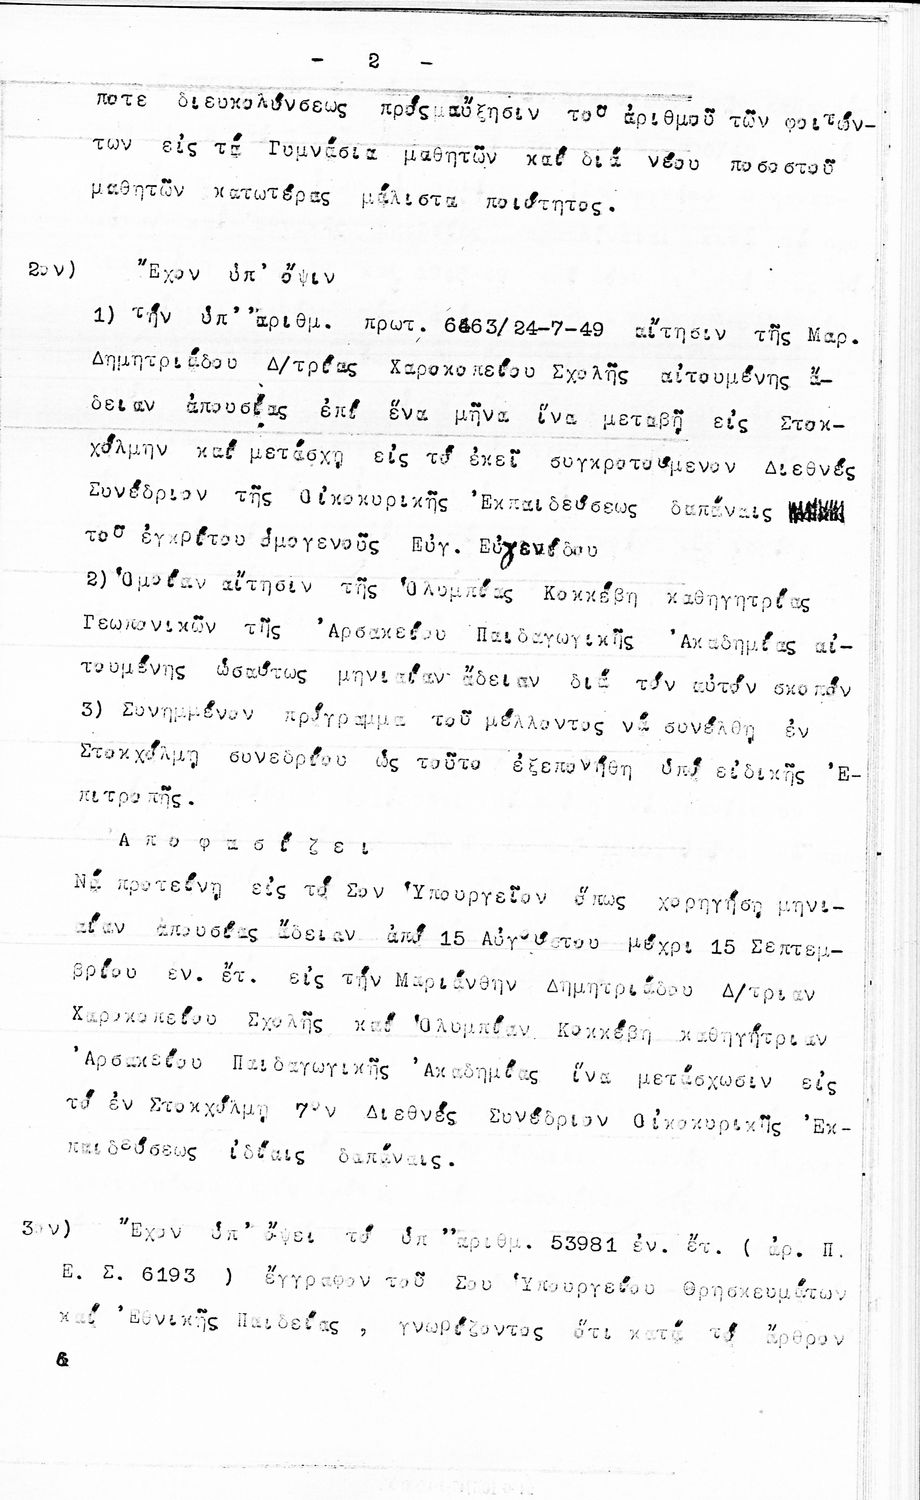 - 2 -
ποτε διευκολύνσεως πρός αὔξησιν τοῦ ἀριθμοῦ τῶν φοιτών-
των εἰς τά Γυμνάσια μαθητῶν καί διά νέου ποσοστοῦ
μαθητῶν κατωτέρας μάλιστα ποιότητος.
2ον) Ἔχον ὑπ' ὄψιν
1) τήν ὑπ' ἀριθμ. πρωτ. 6463/24-7-49 αἴτησιν τῆς Μαρ.
Δημητριάδου Δ/τρίας Χαροκοπείου Σχολῆς αἰτουμένης ἄ-
δειαν ἀπουσίας ἐπί ἕνα μῆνα ἵνα μεταβῇ εἰς Στοκ-
χόλμην καί μετάσχῃ εἰς τό ἐκεῖ συγκροτούμενον Διεθνές
Συνέδριον τῆς Οἰκοκυρικῆς Ἐκπαιδεύσεως δαπάναις
τοῦ ἐγκρίτου ὁμογενοῦς Εὐγ. Εὐγενίδου
2) Ὁμοίαν αἴτησιν τῆς Ὀλυμπίας Κοκκέβη καθηγητρίας
Γεωπονικῶν τῆς Ἀρσακείου Παιδαγωγικῆς Ἀκαδημίας αἰ-
τουμένης ὡσαύτως μηνιαίαν ἄδειαν διά τόν αὐτόν σκοπόν
3) Συνημμένον πρόγραμμα τοῦ μέλλοντος νά συνέλθῃ ἐν
Στοκχόλμῃ συνεδρίου ὡς τοῦτο ἐξεπονήθη ὑπό εἰδικῆς Ἐ-
πιτροπῆς.
Ἀ π ο φ α σ ί ζ ε ι
Νά προτείνῃ εἰς τό Σον Ὑπουργεῖον ὅπως χορηγήσῃ μηνι-
αίαν ἀπουσίας ἄδειαν ἀπό 15 Αὐγούστου μέχρι 15 Σεπτεμ-
βρίου εν. ἔτ. εἰς τήν Μαριάνθην Δημητριάδου Δ/τριαν
Χαροκοπείου Σχολῆς καί Ὀλυμπίαν Κοκκέβη καθηγήτριαν
Ἀρσακείου Παιδαγωγικῆς Ἀκαδημίας ἵνα μετάσχωσιν εἰς
τό ἐν Στοκχόλμῃ 7ον Διεθνές Συνέδριον Οἰκοκυρικῆς Ἐκ-
παιδεύσεως ἰδίαις δαπάναις.
3ον) Ἔχον ὑπ' ὄψει τό ὑπ' ἀριθμ. 53981 ἐν. ἔτ. ( ἀρ. Π.
Ε. Σ. 6193 ) ἔγγραφον τοῦ Σου Ὑπουργείου Θρησκευμάτων
καί Ἐθνικῆς Παιδείας , γνωρίζοντος ὅτι κατά τό ἄρθρον